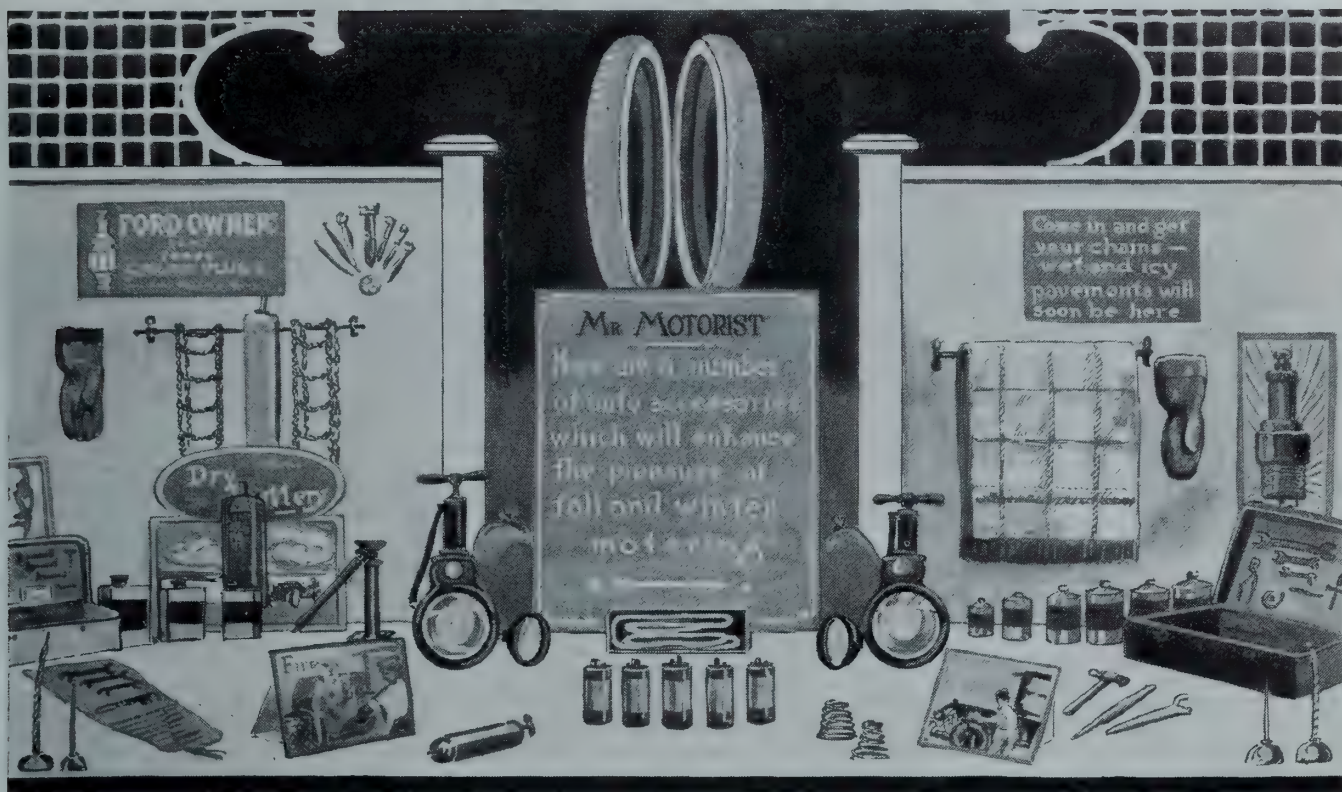 FORD OWNERS
Dry
MR MOTORIST
Here are a number
of auto accessories
which will enhance
the pleasure of
fall and winter
motoring
Come in and get
your chains —
wet and icy
pavements will
soon be here
Fire